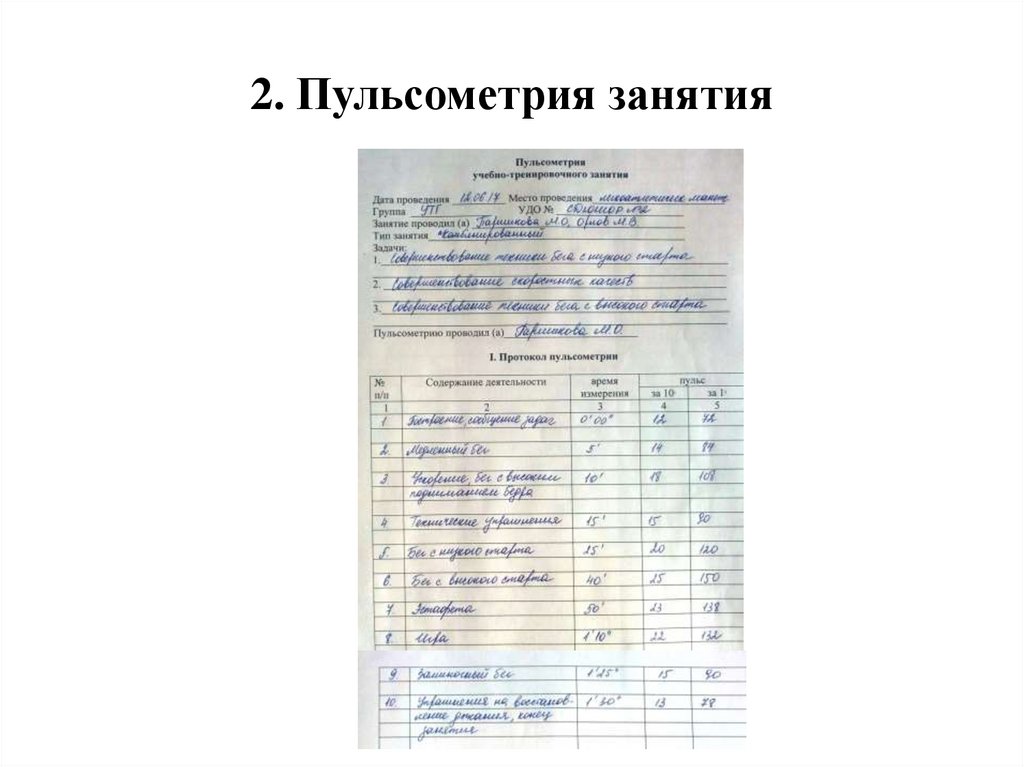 2. Пульсометрия занятия
Пульсометрия
учебно-тренировочного занятия
Дата проведения 12.06.17 Место проведения легкоатлетическ. манеж
Группа УТГ УДО № СДЮШОР №2
Занятие проводил (а) Паршикова М.О, Орлов М.В.
Тип занятия Комбинированный
Задачи:
1. Совершенствование техники бега с низкого старта
2. Совершенствование скоростных качеств
3. Совершенствование техники бега с высокого старта
Пульсометрию проводил (а) Паршикова М.О.
I. Протокол пульсометрии
№ п/п Содержание деятельности время измерения пульс за 10 за 1
1 2 3 4 5
1 Построение, сообщение задач 0'00" 12 72
2. Медленный бег 5' 14 84
3 Ускорение, бег с высоким 10' 18 108
подниманием бедра
4. Технические упражнения 15' 15 90
5. Бег с низкого старта 25' 20 120
6. Бег с высокого старта 40' 25 150
7. Эстафета 50' 23 138
8. Игра 1'10" 22 132
9 Заминочный бег 1'25" 15 90
10. Упражнения на восстанов- 1'30" 13 78
ление дыхания, конец
занятия